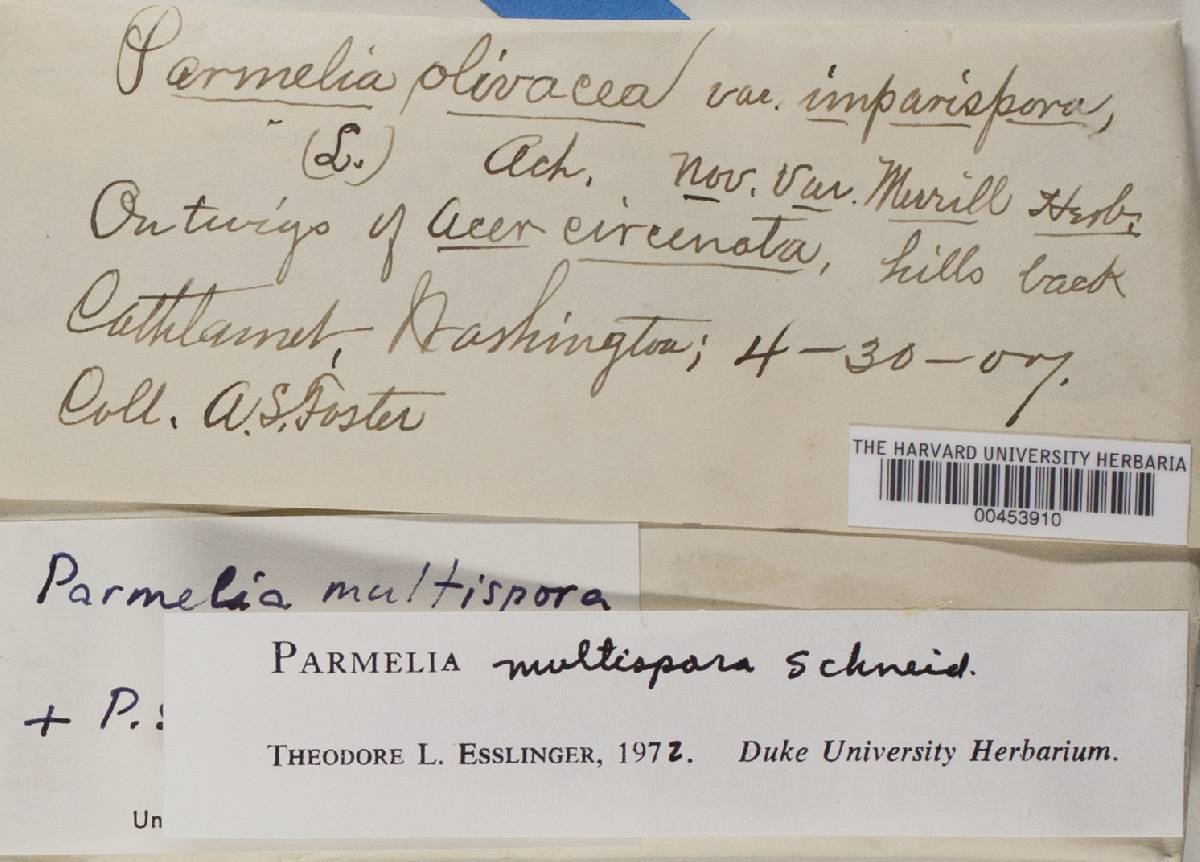 Parmelia olivacea var. imparispora,
(L.) Ach. Nov. Var. Murill Herb.
On twigs of Acer circinata, hills back
Cathlamet, Washington; 4-30-07.
Coll. A.S. Foster
THE HARVARD UNIVERSITY HERBARIA
00453910
Parmelia multispora
+ P.
PARMELIA multispora Schneid.
THEODORE L. ESSLINGER, 1972. Duke University Herbarium.
Un